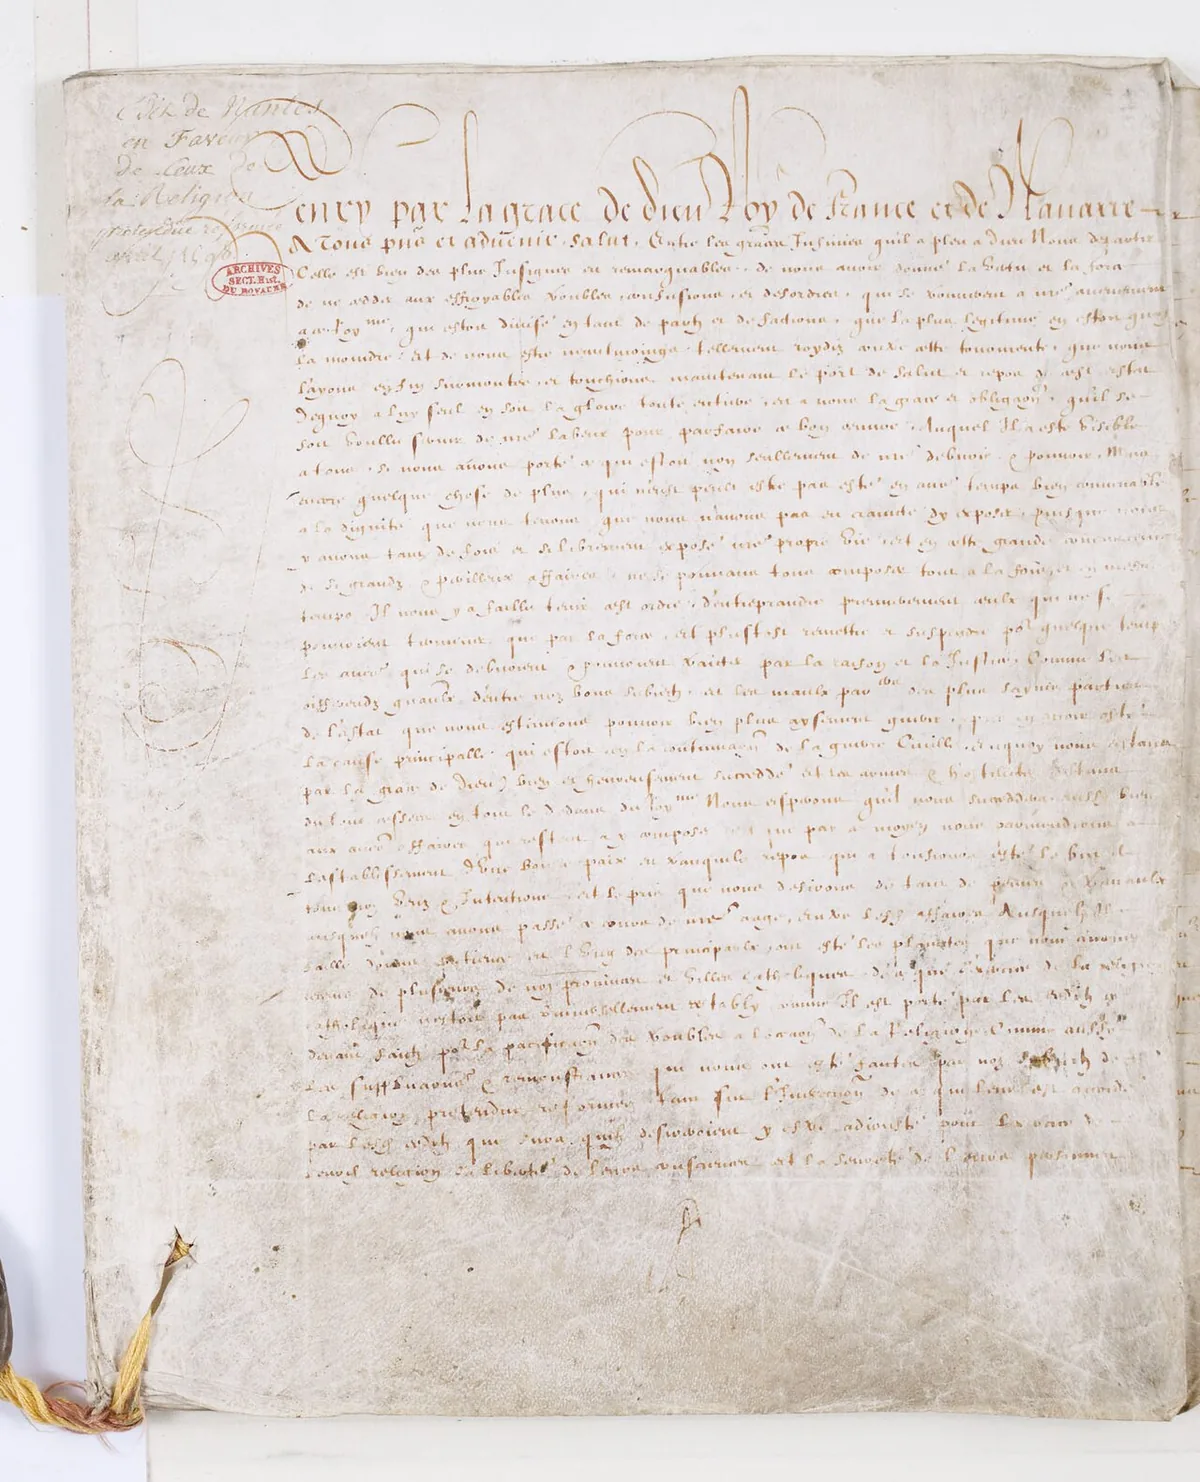 Edit de Nantes
en Faveur
de Ceux de
la Religion
pretendue reformée
avril 1598
ARCHIVES
SECT. HIST.
DU ROYAUME
Henry par la grace de dieu Roy de France et de Navarre
A tous pns et advenir, salut. Entre les graces Infinies qu'il a pleu a Dieu Nous departir
Celle est bien des plus Insignes et remarquables, de nous avoir donné la vertu et la force
de ne ceder aux effroyables troubles, confusions, et desordres, qui se trouverent a nre advenement
a ce Royme, qui estoit divisé en tant de partz et de factions, que la plus legitime en estoit quasi
la moindre, et de nous estre neantmoings tellement roydiz contre ceste tourmente, que nous
l'ayons enfin surmontée, et touchions maintenant le port de salut et repos de cest estat
Dequoy a luy seul en soit la gloire toute entiere, et a nous la grace et obligaon, qu'il se
soit voullu servir de nre labeur pour parfaire ce bon oeuvre, Auquel Il a esté visible
a tous, si nous avons porté ce qui estoit non seullement de nre debvoir & pouvoir, Mais
encore quelque chose de plus, qui n'eust peult estre pas esté en autre temps bien convenable
a la dignité que nous tenons, que nous n'avons pas eu craincte d'y exposer, puisque nous
y avons tant de fois et si librement exposé nre propre vie, et en ceste grande concurrence
de si grandz & perilleux affaires, ne se pouvans tous composer tout a la fois et en mesme
temps, Il nous y a fallu tenir cest ordre, d'entreprendre premierement ceulx qui ne se
pouvoient terminer que par la force, et plustost remettre et suspendre por quelque temps
les autres qui se debvoient & pouvoient traicter par la raison et la Justice, Comme les
differendz generaulx d'entre noz bons subiectz, et les maulx parers des plus saynes parties
de l'estat que nous estimions pouvoir bien plus aysement guerir, apres en avoir osté
la cause principalle, qui estoit en la continuaon de la guerre Civille, en quoy nous estans
par la grace de Dieu) bien et heureusement succeddé, et les armes & hostilitez estans
du tout cessées en tout le dedans du Royme Nous esperons qu'il nous succeddera aussy bien
aux autres affaires qui restent a y composer, et que par ce moyen nous parviendrons a
l'establissement d'une bonne paix et tranquile repos qui a tousiours esté le but de
tous noz veuz & Intentions, et le prix que nous desirons de tant de peines & travaulx
ausquelz nous avons passé ce cours de nre aage, entre lesd. affaires Ausquelz Il a
fallu donner patience, et l'un des principaulx, ont esté les plainctes que nous avons
receues de plusieurs de noz provinces et villes catholiques, de ce que l'exercice de la religion
catholique n'estoit pas universellement restably, comme Il est porté par les edictz cy
devant faictz por la pacificaon des troubles a l'occaon de la Religion, Comme aussy
les supplicaons & remonstrances qui nous ont esté faictes par noz subiectz de la
la religion pretendue reformée, tant sur l'Inexecuon de ce qui leur est accordé
par lesd. edictz, que sur ce qu'ilz desireroient y estre adiousté pour l'exercice de
leurd. religion, la liberté de leurs consciences, et la seureté de leurs personnes